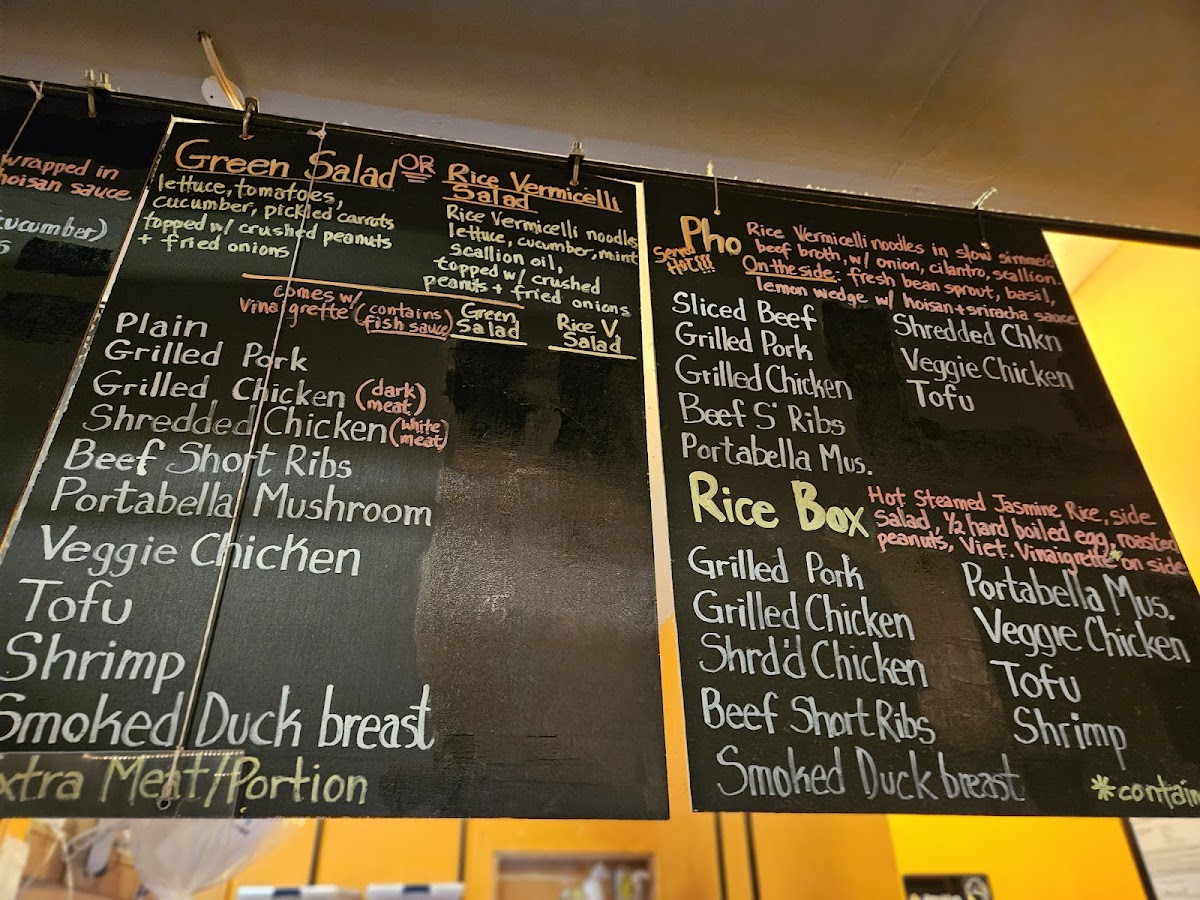 wrapped in
hoisan sauce
cucumber)
Green Salad OR
lettuce, tomatoes,
cucumber, pickled carrots
topped w/ crushed peanuts
+ fried onions
Rice Vermicelli
Salad
Rice Vermicelli noodles
lettuce, cucumber, mint
scallion oil,
topped w/ crushed
peanuts + fried onions
comes w/
vinaigrette (contains
fish sauce)
Green
Salad
Rice V.
Salad
Plain
Grilled Pork
Grilled Chicken (dark
meat)
Shredded Chicken (white
meat)
Beef Short Ribs
Portabella Mushroom
Veggie Chicken
Tofu
Shrimp
Smoked Duck breast
Extra Meat/Portion
Pho
Served
HOT!!!
Rice Vermicelli noodles in slow simmered
beef broth, w/ onion, cilantro, scallion.
On the side: fresh bean sprout, basil,
lemon wedge w/ hoisan + sriracha sauce
Sliced Beef
Grilled Pork
Grilled Chicken
Beef S' Ribs
Portabella Mus.
Shredded Chkn
Veggie Chicken
Tofu
Rice Box
Hot Steamed Jasmine Rice, side
Salad, ½ hard boiled egg, roasted
peanuts, Viet. Vinaigrette* on side
Grilled Pork
Grilled Chicken
Shrd'd Chicken
Beef Short Ribs
Smoked Duck breast
Portabella Mus.
Veggie Chicken
Tofu
Shrimp
*contain